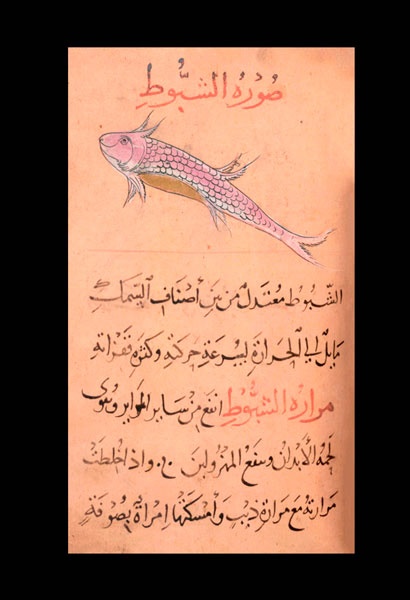 صُورَة الشَّبُّوطِ
الشَّبُّوط مُعتَدلٌ من بين أصْنافِ السَّمَكِ
مَايل إلي الحَرارَةِ لسُرعَةِ حركتهِ وكثرة قفزاتهِ
مرارة الشَّبُّوطِ انفع من ساير المراير وَيقوى
لحمهُ الأبدانَ وينفع المهزُولين ۞ وَاذا خلطت
مرارتهُ مَع مَرارَةِ ذيبٍ وَأمسَكتها امراةٌ بِصُوفةٍ